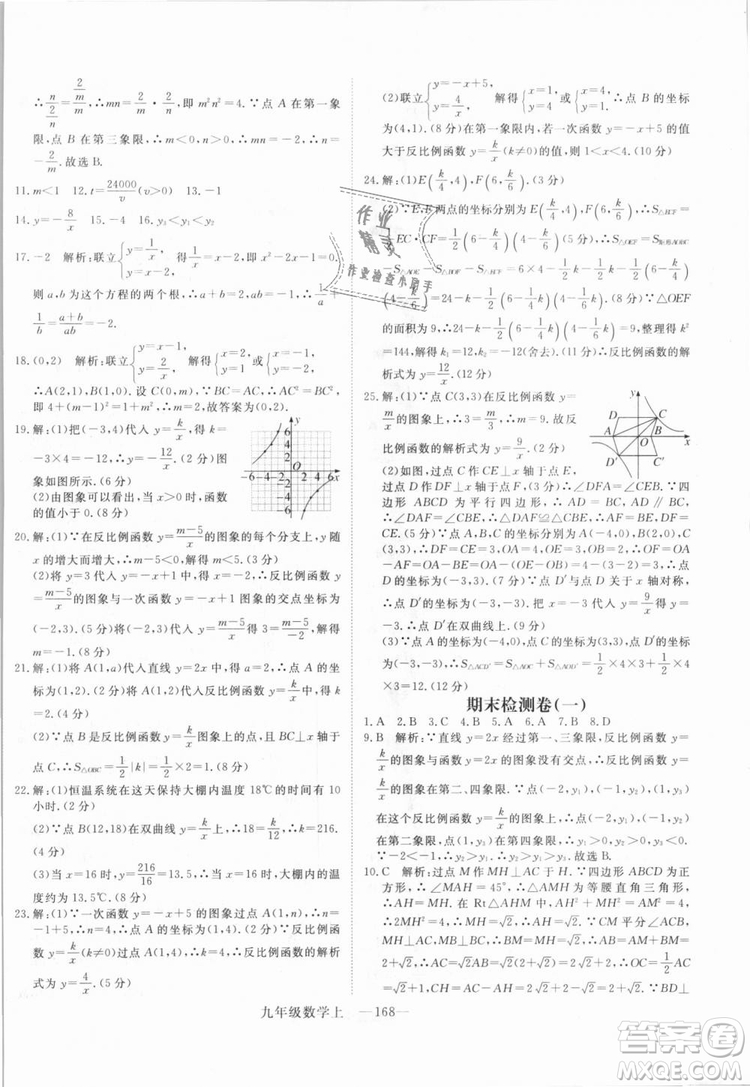 ∴n/(2/n)=(2/m)/m,∴mn=2/n·2/m,即m²n²=4.∵点A在第一象
限,点B在第三象限,∴m<0,n>0,∴mn=-2,
故选B.
11.m<1 12.t=24000/v(v>0) 13.-1
14.y=-8/x 15.-4 16.y₃<y₁<y₂
17.-2 解析:联立{y=1/x,
则a,b为这个方程的两个根,∴a+b=-2,ab=-1,∴1/a+
1/b=(a+b)/ab=2.
18.(0,2) 解析:联立
∴A(2,2),B(1,0).设C(0,m).∵BC=AC,∴AC²=BC²,
即4+(m-2)²=1+m²,∴m=2.故答案为(0,2).
19.解:(1)把(-3,4)代入y=k/x,得k=
-3×4=-12,∴y=-12/x.(2分)图
象如图所示.(6分)
(2)由图象可以看出,当x>0时,函数
的值小于0.(8分)
20.解:(1)∵在反比例函数y=(m-5)/x图象的每个分支上,y随
x的增大而增大,∴m-5<0,解得m<5.(3分)
(2)将y=3代入y=-x+1中,得x=-2,∴反比例函数
y=(m-5)/x的图象与一次函数y=-x+1图象的交点坐标为
(-2,3).(6分)将(-2,3)代入y=(m-5)/x得3=(m-5)/-2,解得
m=-1.(8分)
21.解:(1)将A(1,a)代入直线y=2x中,得a=2,∴点A的坐
标为(1,2).(2分)将A(1,2)代入反比例函数y=k/x中,得
k=2,∴反比例函数的解析式为y=2/x.(4分)
(2)∵点B是反比例函数y=k/x图象上的点,且BC⊥x轴于
点C,∴S△OBC=1/2|k|=1/2×2=1.(8分)
22.解:(1)恒温系统在这天保持大棚内温度18℃的时间有10
小时.(2分)
(2)∵点B(12,18)在双曲线y=k/x上,∴18=k/12,∴k=216.
(5分)
(3)当x=16时,y=216/16=13.5,∴当x=16时,大棚内的温度
约为13.5℃.(8分)
23.解:(1)∵一次函数y=-x+5的图象过点A(1,n),∴n=
-1+5,∴n=4,∴点A的坐标为(1,4).(2分)∵反比例函数
y=k/x(k≠0)过点A(1,4),∴k=4,∴反比例函数的解析
式为y=4/x.(4分)
九年级数学上
—168—
(2)联立{y=-x+5,y=4/x,解得{x=1,y=4或{x=4,y=1,∴点B的坐标为
(4,1).(6分)∵点B在第一象限内,若一次函数y=-x+5的值
大于反比例函数y=k/x(k≠0)的值,则1<x<4.(8分)
24.解:(1)E(k/4,4),F(6,k/6).(3分)
(2)∵E,F两点的坐标分别为E(k/4,4),F(6,k/6),∴S△ECF
EC·CF=1/2(6-k/4)(4-k/6),
(4-k/6)=24-k/2-k/2-1/2(6-k/4)(4-k/6).(6分)∵△OEF
的面积为9,∴24-k-1/2(6-k/4)(4-k/6)=9,整理得k²
=144,解得k₁=12,k₂=-12(舍去).(8分)∴反比例函数的
解析式为y=12/x.(10分)
25.解:(1)∵点C(3,3)在反比例函数y=
k/x的图象上,∴3=k/3,∴k=9,故反
比例函数的解析式为y=9/x.(3分)
(2)如图,过点C作CE⊥x轴于点E,
过点D作DF⊥x轴于点F,∴∠DFA=∠CEB.∵四
边形ABCD为平行四边形,∴AD=BC,AD∥BC,
∴∠DAF=∠CBE,∴△DAF≌△CBE,∴AF=BE,DF=
CE.(5分)∵点A的坐标为(-4,0),点B的坐标为(2,0),点C的坐标为
(3,3),∴DF=CE=3,OA=4,OE=3,OB=2,∴OF=
OA-AF=OA-BE=OA-(OE-OB)=4-(3-2)=3,∴点D的坐标
为(-3,3).(7分)∵点D′与点D关于x轴对称,∴点D′
的坐标为(-3,-3).把x=-3代入y=9/x,得y=-3,
∴点D′在双曲线上.(9分)
(3)∵点A的坐标为(-4,0),点C(3,3)和点D′(-3,-3)关于
原点O中心对称,∴S△ACD′=2S△AOC=2×1/2AO·CE=2×1/2×4
×3=12.(12分)
期末检测卷(一)
1.A 2.B 3.C 4.B 5.A 6.A 7.B 8.D
9.B 解析:∵直线y=2x经过第一、三象限,反比例函数y=
k/x的图象与函数y=2x的图象没有交点,∴反比例函数y=
k/x的图象在第二、四象限.∵点(-2,y₁),(-1,y₂),(1,y₃)
在这个反比例函数y=k/x的图象上,∴点(-2,y₁),(-1,y₂)
在第二象限,点(1,y₃)在第四象限,∴y₁>0,y₂>0,y₃<0.
∵-2<-1,∴y₂>y₁,∴y₂>y₁>y₃.故选B.
10.C 解析:过点M作MH⊥AC于H.∵四边形ABCD为正
方形,∴∠MAH=45°,∴△AMH为等腰直角三角形,
∴AH=MH.在Rt△AMH中,AH²+MH²=AM²,
∴2MH²=4,∴MH=√2.∵CM平分∠ACB,∴BM=MH=√2,∴AB=
2+√2,∴AC=√2AB=√2(2+√2)=2√2+2,∴OC=1/2AC=
√2+1,CH=AC-AH=2√2+2-√2=2+√2.∵BD⊥
作业
精灵
作业检查小助手
答案卷
MXQE.COM